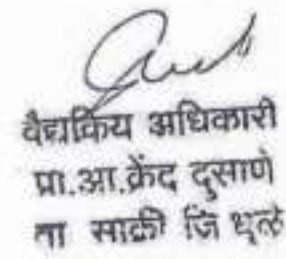 वैद्यकिय अधिकारी
प्रा.आ.केंद दुसाणे
ता साक्री जि धुळे